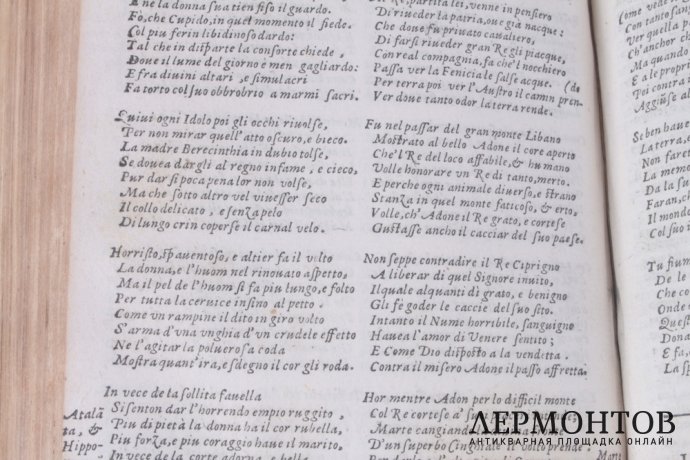 E ne la donna sua tien fiso il guardo.
Fo, che Cupido, in quel momento il fiede.
Col piu ferin libidinoso dardo:
Tal che in disparte la consorte chiede,
Doue il lume del giorno e men gagliardo:
E fra diuini altari, e simulacri
Fa torto col suo obbrobrio a marmi sacri.
Quiui ogni Idolo poi gli occhi riuolse,
Per non mirar quell'atto oscuro, e bieco.
La madre Berecinthia in dubio tolse,
Se douea dargli al regno infame, e cieco,
Pur dar si poca pena lor non volse,
Ma che sotto altro vel viuesser seco
Il collo delicato, e senza pelo
Di lungo crin coperse il carnal velo.
Horristo, spauentoso, e altier fa il volto
La donna, e l'huom nel rinouato aspetto,
Ma il pel de l'huom si fa piu lungo, e folto
Per tutta la ceruice insino al petto.
Come vn rampine il dito in giro volto
S'arma d'vna vnghia d'vn crudele effetto
Ne l'agitar la poluerosa coda
Mostra quant'ira, e sdegno il cor gli roda.
In vece de la sollita fauella
Si senton dar l'horrendo empio ruggito,
Piu di pietà la donna ha il cor rubella,
Piu forza, e piu coraggio haue il marito.
In vece de la corte adorna, e bella
Atalã
ta, &
Hippo-
Re, partita lei, venne in pensiero
Di riueder la patria, oue già nacque:
Che doue fu priuato caualiero,
Di farsi riueder gran Re gli piacque,
Con real compagnia, fa che'l nocchiero
Passa ver la Fenicia le salse acque. (de
Per terra poi ver l'Austro il camin pren-
Ver doue tanto odor la terra rende.
Fu nel passar del gran monte Libano
Mostrato al bello Adone il core aperto
Che'l Re del loco affabile, & humano
Volle honorare vn Re di tanto, merto.
E perche ogni animale diuerso, e strano
Stanza in quel monte faticoso, & erto,
Volle, ch'Adone il Re grato, e cortese
Gustasse ancho il cacciar del suo paese.
Non seppe contradire il Re Ciprigno
A liberar di quel Signore inuito,
Il quale alquanti di grato, e benigno
Gli fè goder le caccie del suo sito.
Intanto il Nume horribile, sanguigno
Hauea l'amor di Venere sentito;
E Come Dio disposto a la vendetta
Contra il misero Adone il passo affretta.
Hor mentre Adon per lo difficil monte
Col Re cortese
Marte cangiando
D'vn superbo Cinghiale il volto prende.
Marte
Come vede
Con tanto
Ver quella
Ch'anchor
Ma quando
E a le proprie
Poi contra
Aggiuse al
Se ben haue
La terra,
Non faret
La memo
Da la su
Faran,
Il mond
Col cor
Tu fium
De le
Che co
Onde
Quest
Dona
E fam
La sp
ЛЕРМОНТОВ
АНТИКВАРНАЯ ПЛОЩАДКА ОНЛАЙН